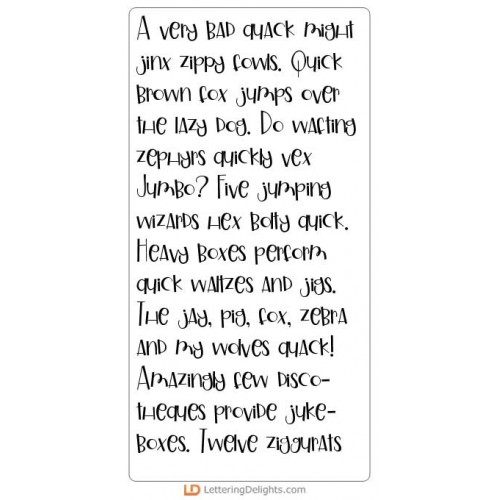 A very bad quack might
jinx zippy fowls. Quick
brown fox jumps over
the lazy dog. Do wafting
zephyrs quickly vex
Jumbo? Five jumping
wizards hex bolty quick.
Heavy boxes perform
quick waltzes and jigs.
The jay, pig, fox, zebra
and my wolves quack!
Amazingly few disco-
theques provide juke-
boxes. Twelve ziggurats
LD LetteringDelights.com